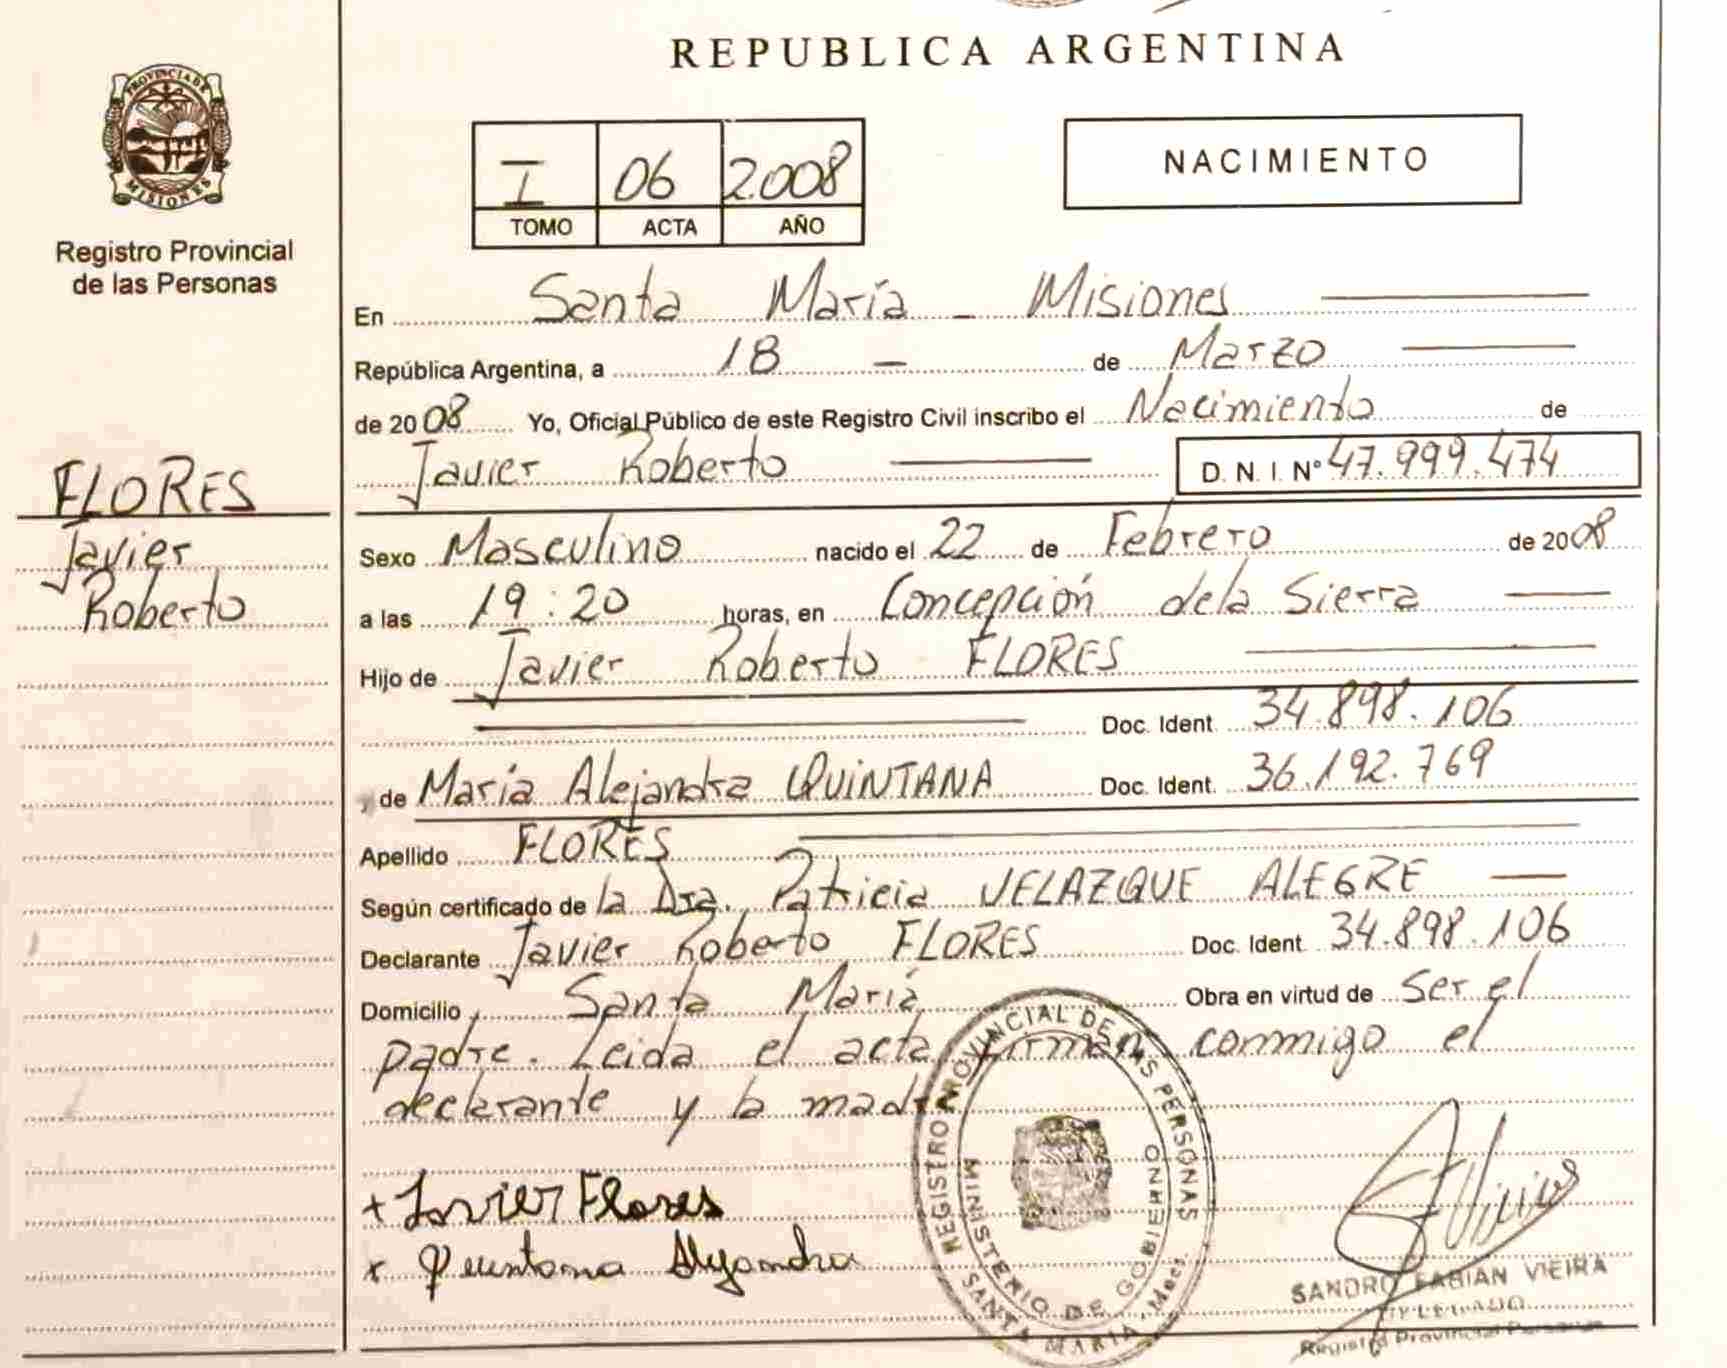 REPUBLICA ARGENTINA
PROVINCIA DE MISIONES
Registro Provincial
de las Personas
I 06 2.008
TOMO ACTA AÑO
NACIMIENTO
En Santa María - Misiones
República Argentina, a 18 - de Marzo
de 2008 Yo, Oficial Público de este Registro Civil inscribo el Nacimiento de
Javier Roberto D. N. I. Nº 47.999.474
FLORES
Javier
Roberto
Sexo Masculino nacido el 22 de Febrero de 2008
a las 19:20 horas, en Concepción dela Sierra
Hijo de Javier Roberto FLORES
Doc. Ident. 34.898.106
y de María Alejandra QUINTANA Doc. Ident. 36.192.769
Apellido FLORES
Según certificado de la Dra. Patricia VELAZQUE ALEGRE
Declarante Javier Roberto FLORES Doc. Ident. 34.898.106
Domicilio Santa María Obra en virtud de Ser el
padre. Leida el acta, firman conmigo el
declarante y la madre
+ Javier Flores
x Quintana Alejandra
REGISTRO PROVINCIAL DE LAS PERSONAS
MINISTERIO DE GOBIERNO
SANTA MARIA, Mnes.
SANDRO FABIAN VIEIRA
DELEGADO
Registro Provincial Personas